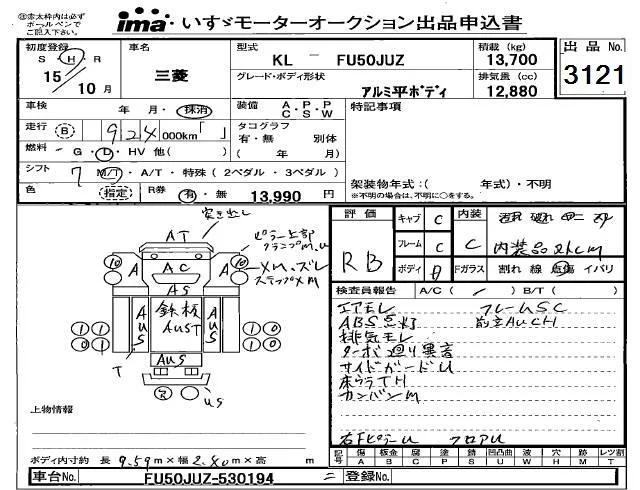 ㊟赤太枠内は必ず
ボールペンで
ご記入下さい。
ima いすゞモーターオークション出品申込書
初度登録 S・H・R 15/10月
車名 三菱
型式 KL － FU50JUZ
グレード・ボディ形状 アルミ平ボディ
積載 (kg) 13,700
排気量 (cc) 12,880
出品 No. 3121
車検 年 月・抹消
装備 A.P.P C S W
特記事項
走行 B 924 000km「 」
タコグラフ 有・無 別体 ( 年 月)
燃料 － G・D・HV 他( )
シフト 7 M/T・A/T・特殊 (2ペダル・3ペダル)
架装物年式:( 年式)・不明
※不明の場合は、不明に○をする。
色 指定 R券 有・無 13,990 円
評価 RB
キャブ C
フレーム C
ボディ
内装 C
内装品
Fガラス 割れ 線 点傷 イバリ
検査員報告 A/C ( / ) B/T ( )
エアモレ フレームSC
ABS点灯
排気モレ
ターボ廻り異音
サイドガードU
カンバンM
フロアU
AT
ピラー上部
クランプM.U
A 10 AC A 10
XM、ズレ
ステップXM
AS
鉄板
AUST
AUS
AUS
1 1 1 1
0 0 0 0
T
AUS
R
US
上物情報
ボディ内寸約 長 9.59 m×幅 2.40 m×高 m
記号 傷 A 板金 B 腐 C 塗 P サビ S 凹凸曲 U 波 W 穴 H 跡 M 雑 T レツ割
車台No. FU50JUZ-530194
登録No.